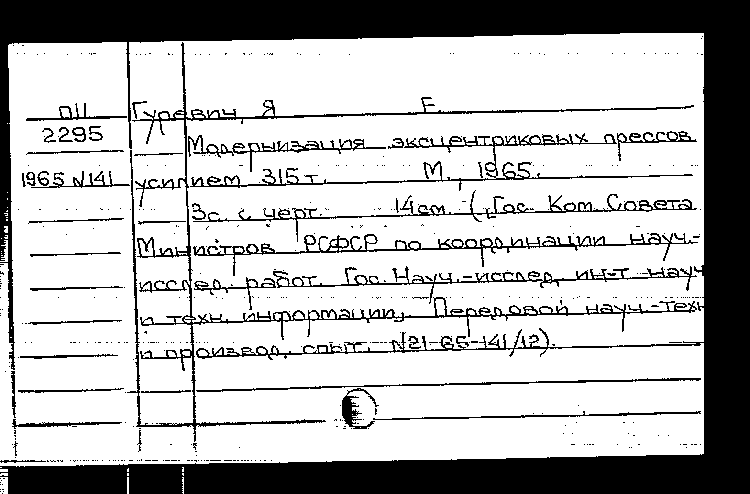 П11 Гуревич, Я Е.
2295
Модернизация эксцентриковых прессов
1965 №141 усилием 315 т. М., 1965.
3с. с черт. 14см. (Гос. Ком. Совета
Министров РСФСР по координации науч.-
исслед. работ. Гос. Науч.-исслед. ин-т науч
и техн. информации. Передовой науч.-техн
и производ. опыт. №21-65-141/12).